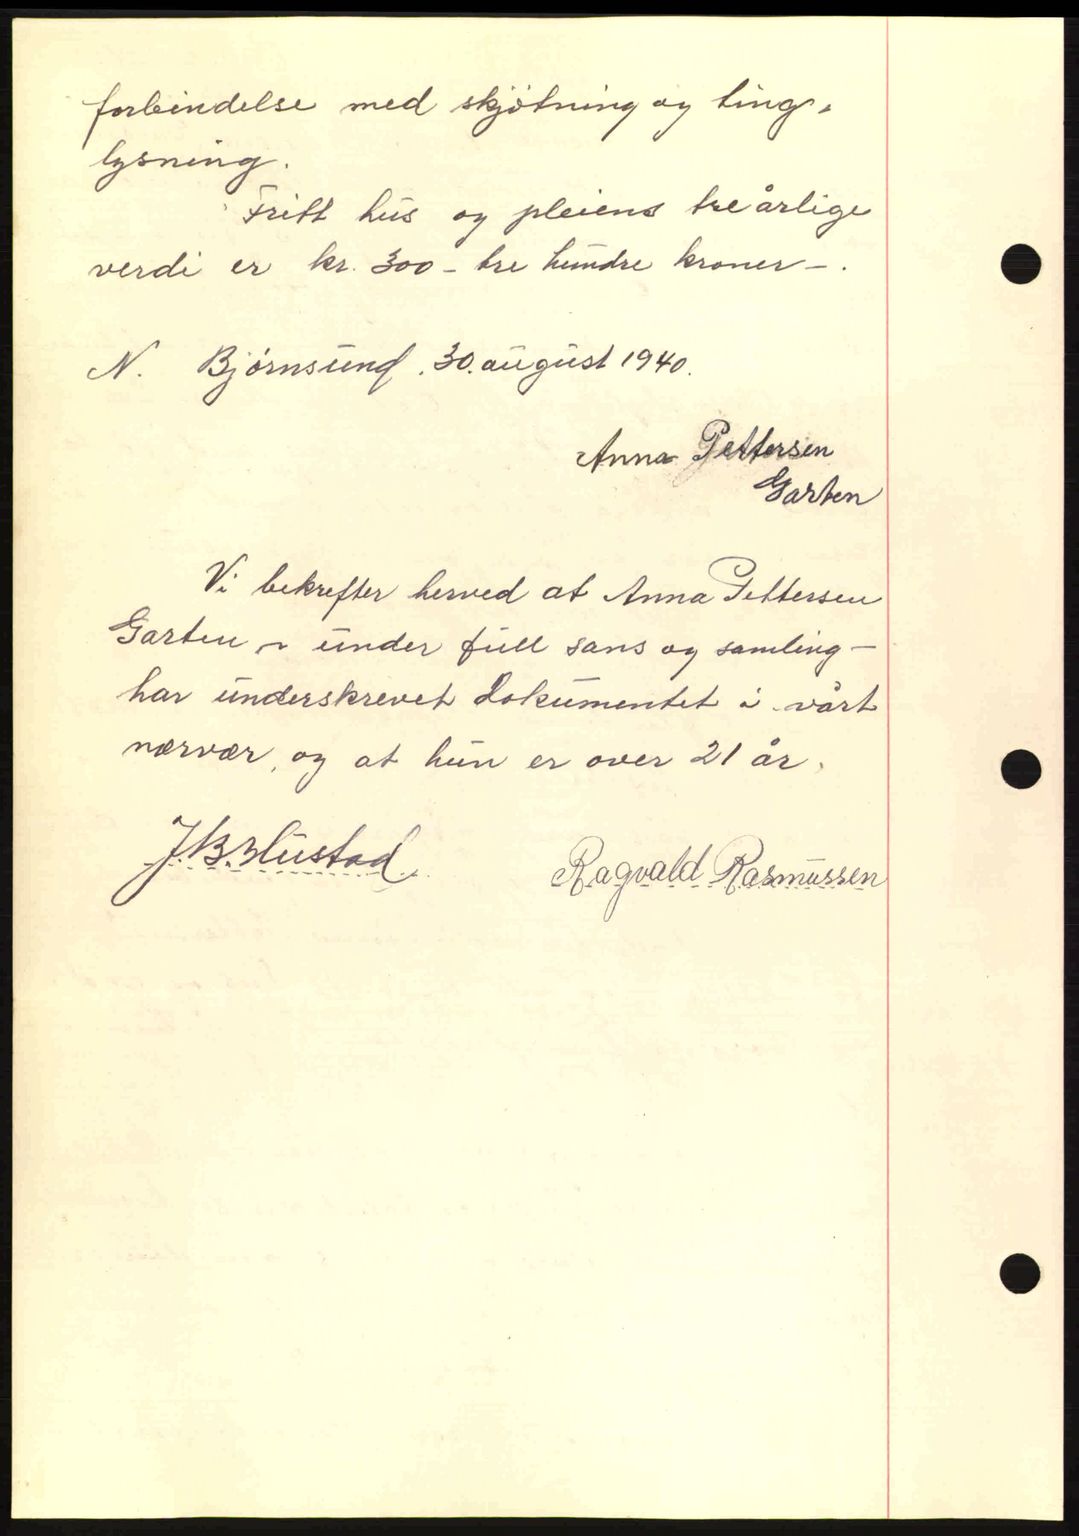 forbindelse med skjøtning og ting-
lysning.
Fritt hus og pleiens tre årlige
verdi er kr. 300 - tre hundre kroner -.
N. Bjørnsund. 30. august 1940.
Anna Pettersen
Garten
Vi bekrefter herved at Anna Pettersen
Garten - under full sans og samling -
har underskrevet dokumentet i vårt
nærvær, og at hun er over 21 år.
J. B. Hustad
Ragvald Rasmussen